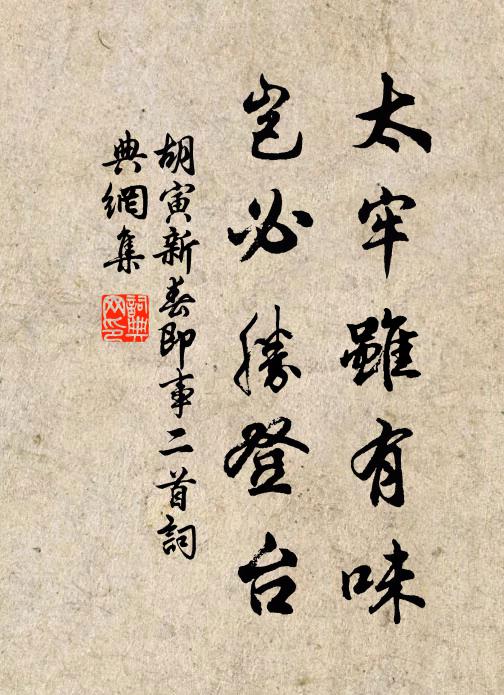 太牢雖有味
豈必勝登台
胡寅新春即事二首詞
典網集
詞典
网印